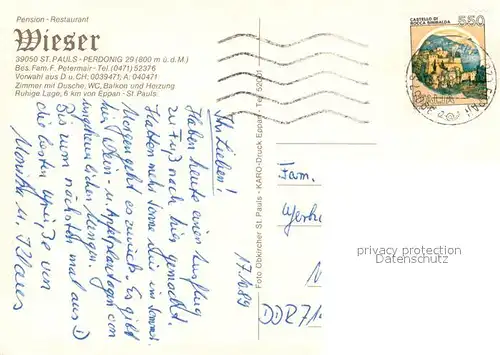 Pension - Restaurant
Wieser
39050 ST. PAULS - PERDONIG 29 (800 m ü. d. M.)
Bes. Fam. F. Petermair - Tel. (0471) 52376
Vorwahl aus D u. CH: 0039471; A: 040471
Zimmer mit Dusche, WC, Balkon und Heizung
Ruhige Lage, 6 km von Eppan - St. Pauls
CASTELLO DI
ROCCA SINIBALDA
550
17.10.89
Ihr Lieben!
Haben heute einen Ausflug
zu Fuß nach hier gemacht.
Haben mehr Sonne wie im Sommer.
Morgen geht es zurück. Es gibt
hier Wein- u. Apfelplantagen von
unglaublichen Mengen.
Bis zum nächsten mal aus D
die besten Grüße von
Monika u. Klaus
Foto Obkircher St. Pauls - KARO-Druck Eppan Tel. 52001
Fam.
DDR 71
privacy protection
Datenschutz